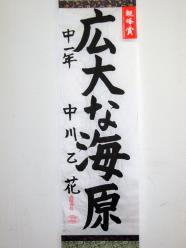 観峰賞
広大な海原
中一年
中川乙花